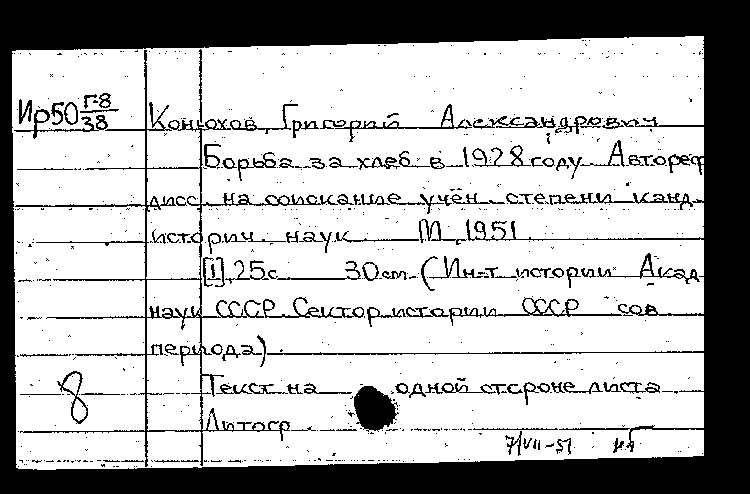 Ир50 Г-8/38
Конюхов, Григорий Александрович
Борьба за хлеб в 1928 году. Автореф
дисс. на соискание учён. степени канд.
историч. наук. М., 1951.
[1], 25с. 30см. (Ин-т истории Акад
наук СССР. Сектор истории СССР сов
периода).
Текст на одной стороне листа
8
Литогр.
7/VII-51